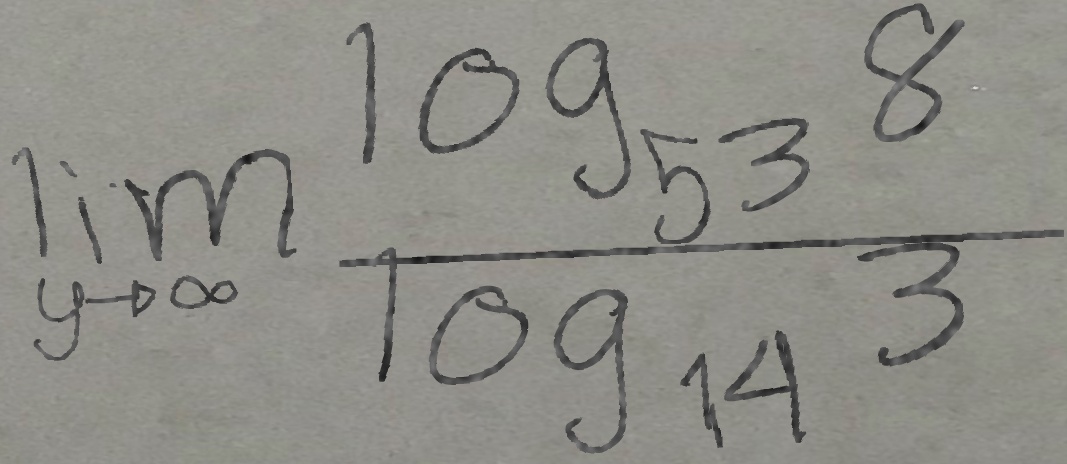 \lim_{y \to \infty} \frac{\log_{53} 8}{\log_{14} 3}